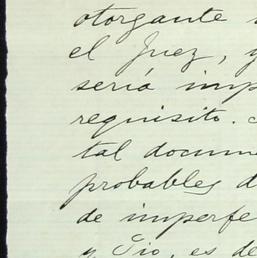 otorgante
el Juez, y
sería imp
requisito.
tal docume
probables d
de imperfe
y Tio, es de